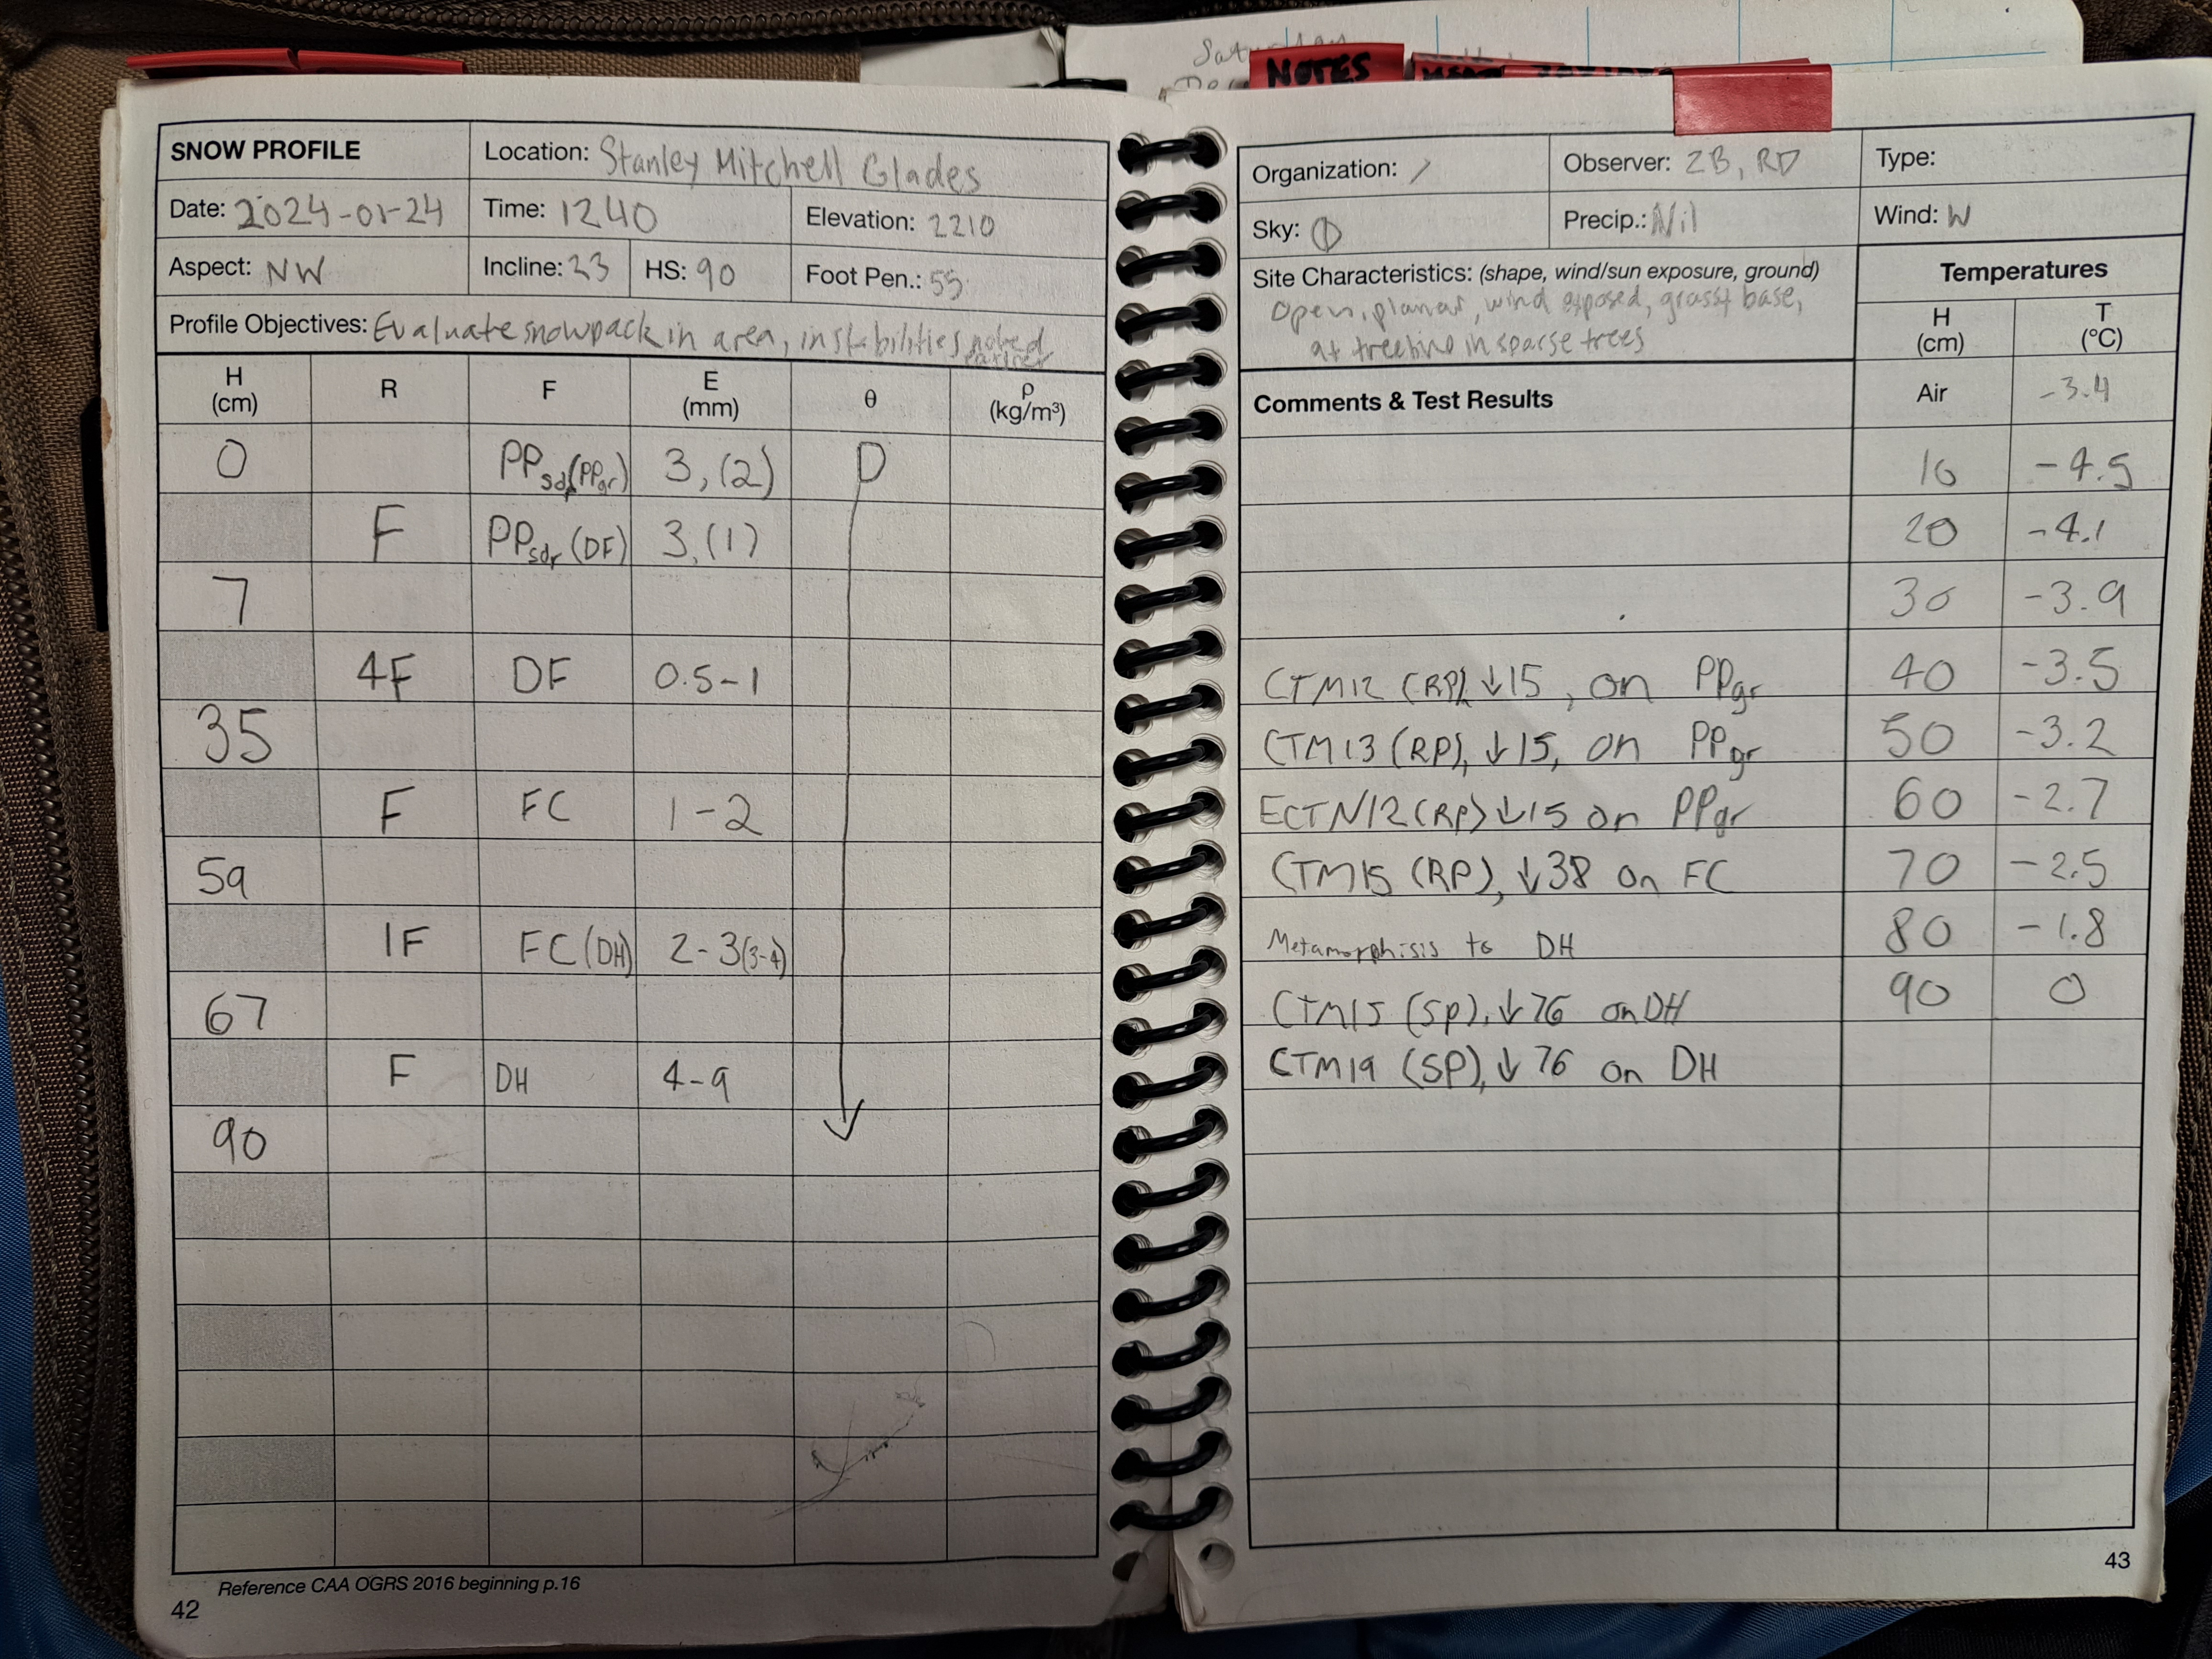 Saturday
NOTES
SNOW PROFILE
Location: Stanley Mitchell Glades
Date: 2024-01-24
Time: 1240
Elevation: 2210
Aspect: NW
Incline: 23
HS: 90
Foot Pen.: 55
Profile Objectives: Evaluate snowpack in area, instabilities noted earlier
H (cm) R F E (mm) θ ρ (kg/m³)
0 PPsdr(PPgr) 3, (2) D
F PPsdr (DF) 3, (1)
7
4F DF 0.5-1
35
F FC 1-2
59
1F FC (DH) 2-3(3-4)
67
F DH 4-9
90
Reference CAA OGRS 2016 beginning p.16
42
Organization: /
Observer: ZB, RD
Type:
Sky: ⦶
Precip.: Nil
Wind: W
Site Characteristics: (shape, wind/sun exposure, ground)
Open, planar, wind exposed, grassy base,
at treeline in sparse trees
Temperatures
H (cm) T (°C)
Comments & Test Results
Air -3.4
10 -4.5
20 -4.1
30 -3.9
CTM12 (RP) ↓15, on PPgr 40 -3.5
CTM13 (RP), ↓15, on PPgr 50 -3.2
ECTN12 (RP) ↓15 on PPgr 60 -2.7
CTM15 (RP), ↓38 on FC 70 -2.5
Metamorphisis to DH 80 -1.8
CTM15 (SP), ↓76 on DH 90 0
CTM19 (SP), ↓76 on DH
43